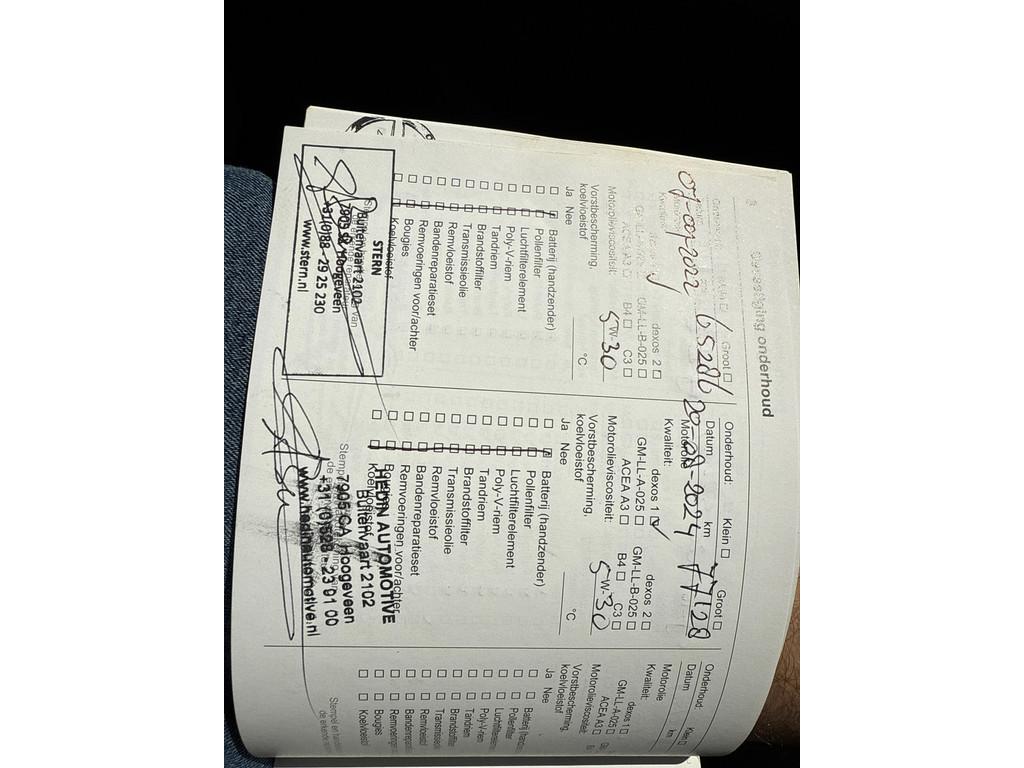 Bevestiging onderhoud
Groot □
07-09-2022 65286
dexos 2 □
GM-LL-B-025 □
ACEA A3 □ B4 □ C3 □
Motorolieviscositeit: 5W-30
Vorstbescherming,
koelvloeistof °C
Ja Nee
□ □ Batterij (handzender)
□ □ Pollenfilter
□ □ Luchtfilterelement
□ □ Poly-V-riem
□ □ Tandriem
□ □ Brandstoffilter
□ □ Transmissieolie
□ □ Remvloeistof
□ □ Bandenreparatieset
□ □ Remvoeringen voor/achter
□ □ Bougies
□ □ Koelvloeistof
STERN
Buitenvaart 2102
Hoogeveen
+31(0)88 - 29 25 230
www.stern.nl
Onderhoud: Klein □ Groot □
Datum km
20-08-2024 77128
Motorolie
Kwaliteit: dexos 1 ☑ dexos 2 □
GM-LL-A-025 □ GM-LL-B-025 □
ACEA A3 □ B4 □ C3 □
Motorolieviscositeit: 5W-30
Vorstbescherming,
koelvloeistof °C
Ja Nee
□ □ Batterij (handzender)
□ □ Pollenfilter
□ □ Luchtfilterelement
□ □ Poly-V-riem
□ □ Tandriem
□ □ Brandstoffilter
□ □ Transmissieolie
□ □ Remvloeistof
□ □ Bandenreparatieset
□ □ Remvoeringen voor/achter
□ □ Koelvloeistof
HEDIN AUTOMOTIVE
Buitenvaart 2102
7905 CA, Hoogeveen
+31 (0)528 - 23 01 00
www.hedinautomotive.nl
Onderhoud: Klein □
Datum km
Motorolie
Kwaliteit: dexos 1 □
GM-LL-A-025 □
ACEA A3 □
Motorolieviscositeit:
Vorstbescherming,
koelvloeistof
Ja Nee
□ □ Batterij (handz
□ □ Pollenfilter
□ □ Luchtfilterelem
□ □ Poly-V-riem
□ □ Tandriem
□ □ Brandstoffilter
□ □ Transmissieol
□ □ Remvloeistof
□ □ Bandenrepara
□ □ Remvoeringen
□ □ Bougies
□ □ Koelvloeistof
Stempel en hand
de erkende repa